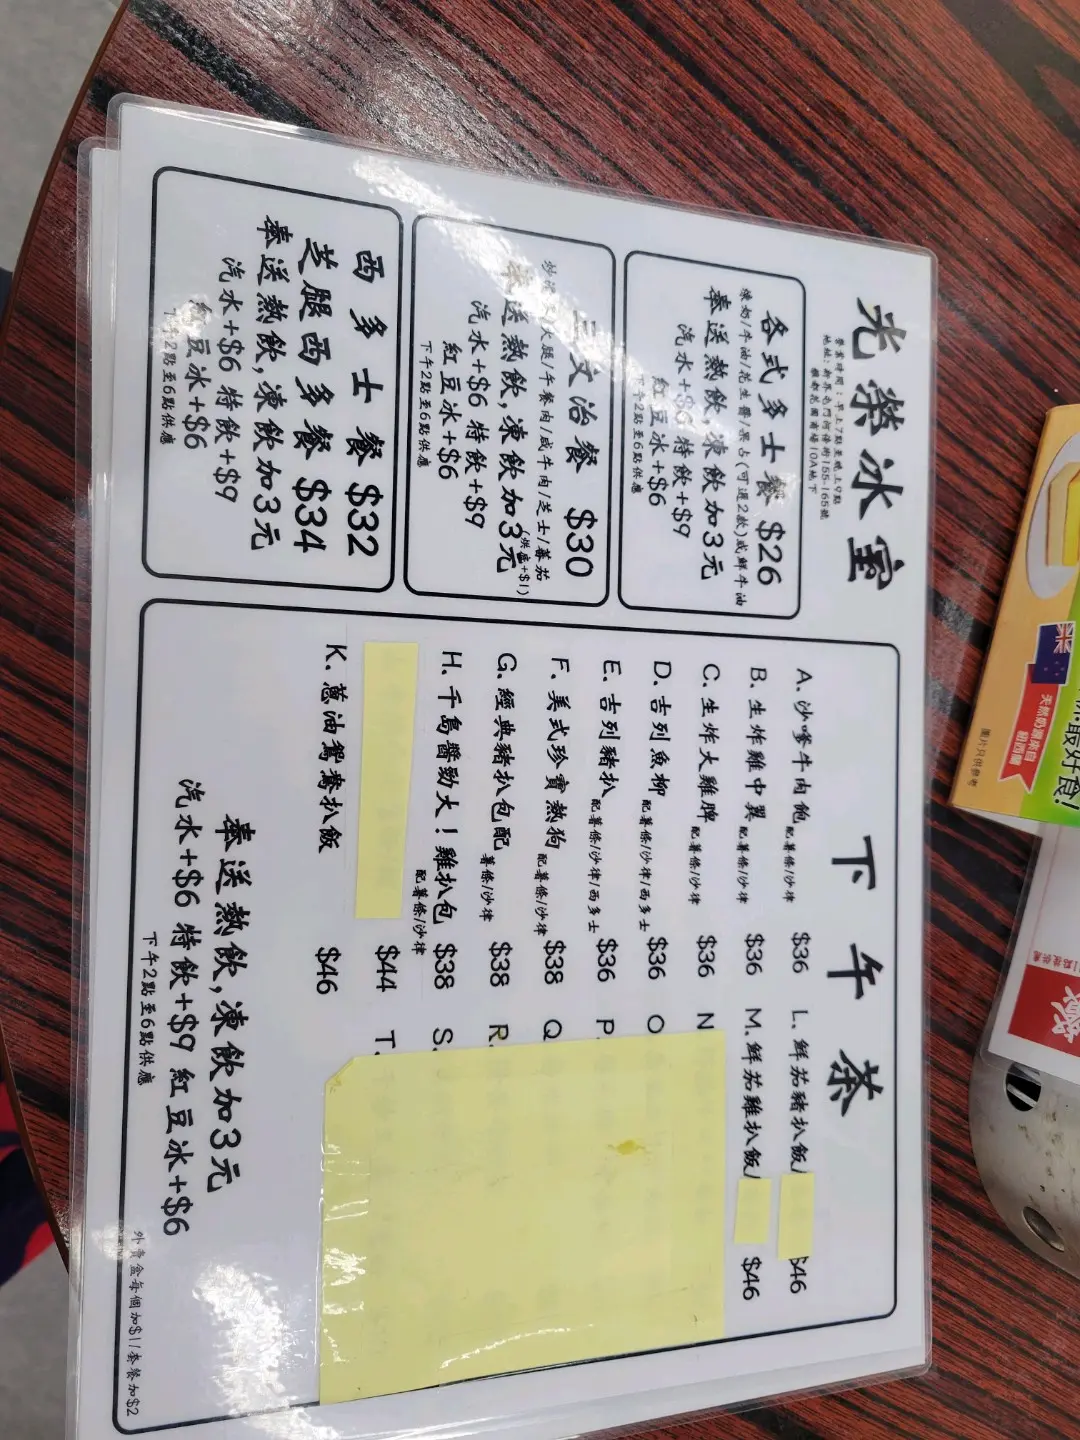 光榮冰室
營業時間:早上7點至晚上9點
地址:新界屯門河傍街155-165號
雅都花園商場10A地下
各式多士餐 $26
煉奶/牛油/花生醬/果占(可選2款)或鮮牛油
奉送熱飲,凍飲加3元
汽水+$6 特飲+$9
紅豆冰+$6
下午2點至6點供應
三文治餐 $30
火腿/午餐肉/咸牛肉/芝士/蕃茄
(烘底+$1)
奉送熱飲,凍飲加3元
汽水+$6 特飲+$9
紅豆冰+$6
下午2點至6點供應
西多士餐 $32
芝腿西多餐 $34
奉送熱飲,凍飲加3元
汽水+$6 特飲+$9
紅豆冰+$6
下午2點至6點供應
下午茶
A. 沙嗲牛肉飽 配薯條/沙律 $36
B. 生炸雞中翼 配薯條/沙律 $36
C. 生炸大雞脾 配薯條/沙律 $36
D. 吉列魚柳 配薯條/沙律/西多士 $36
E. 吉列豬扒 配薯條/沙律/西多士 $36
F. 美式珍寶熱狗 配薯條/沙律 $38
G. 經典豬扒包配 薯條/沙律 $38
H. 千島醬勁大!雞扒包 $38
配薯條/沙律
$44
K. 蔥油鴛鴦扒飯 $46
L. 鮮茄豬扒飯/ $46
M. 鮮茄雞扒飯/ $46
N
O
P
Q
R.
S.
T.
奉送熱飲,凍飲加3元
汽水+$6 特飲+$9 紅豆冰+$6
下午2點至6點供應
外賣盒每個加$1/套餐加$2
最好食!
天然奶源來自
紐西蘭
圖片只供參考